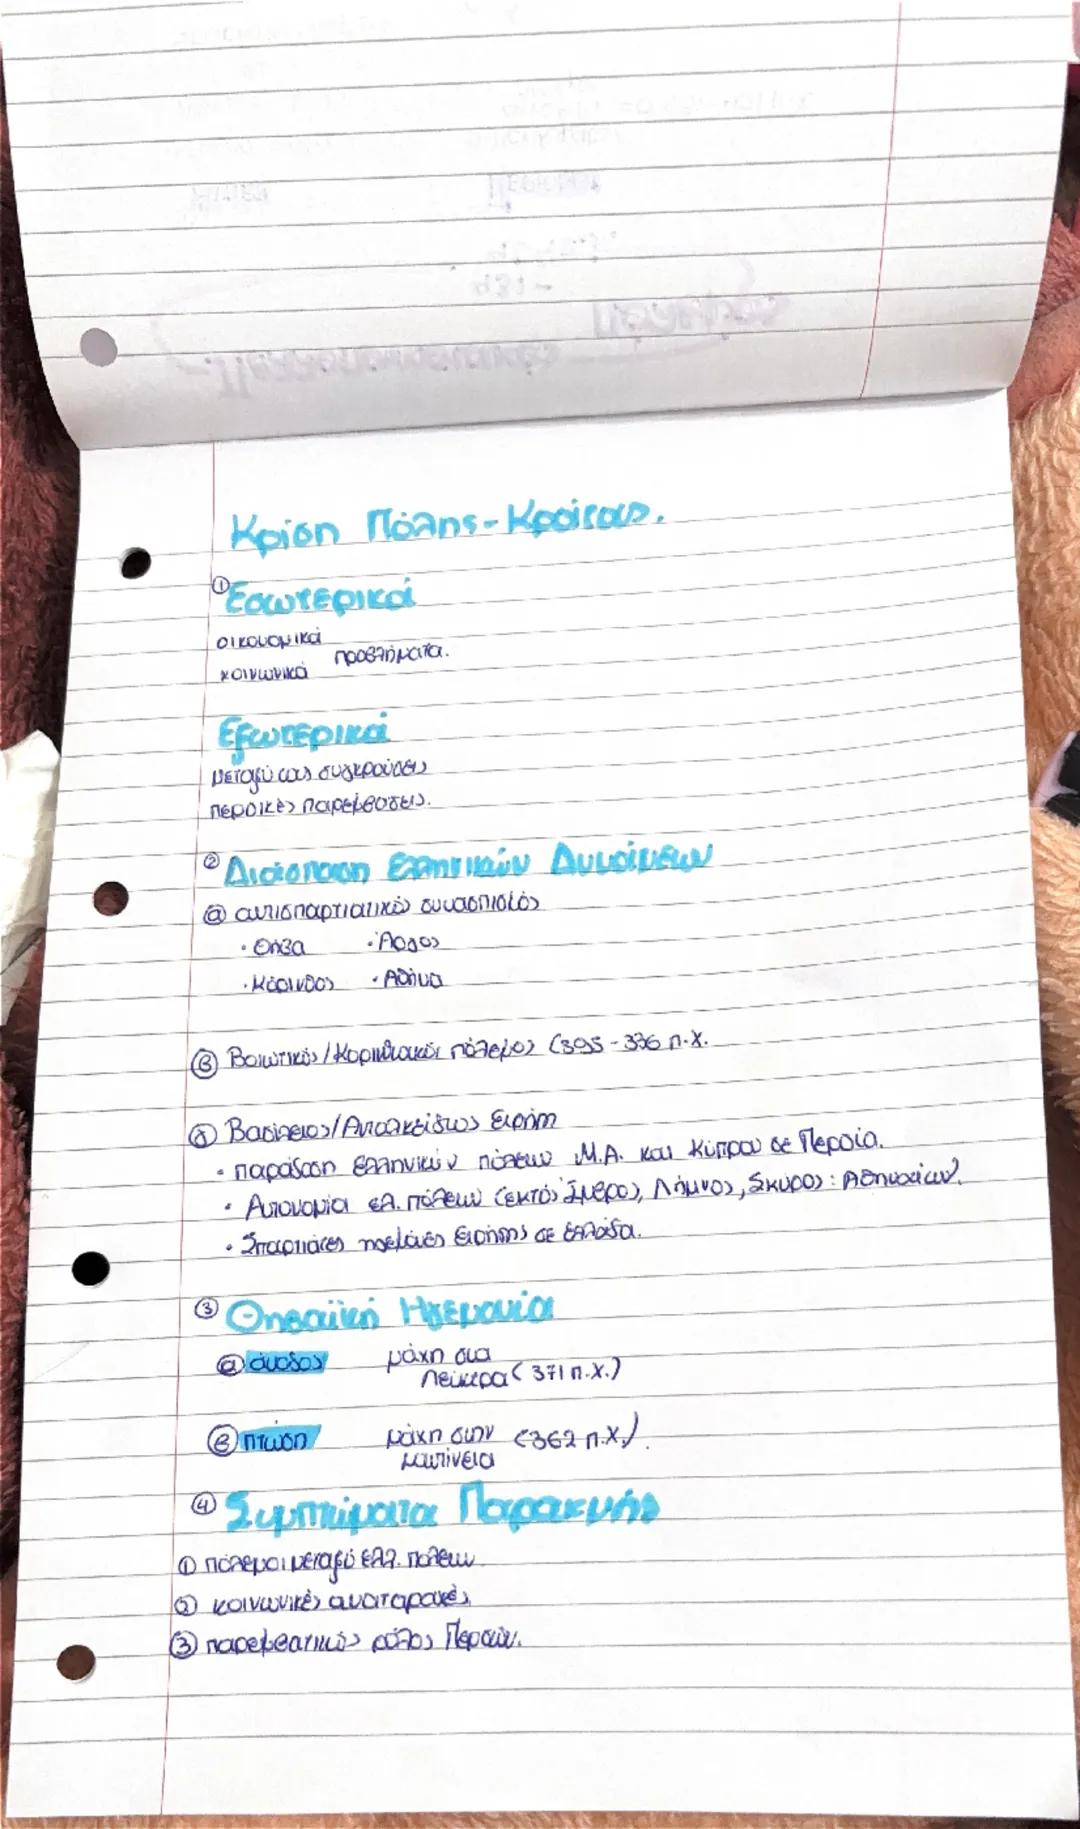 Κρίση Πόλης-Κράτους.
① Εσωτερικά
οικονομικά
κοινωνικά προβλήματα.
Εξωτερικά
μεταξύ τους συγκρούσεις
περσικές παρεμβάσεις.
② Διάσπαση Ελληνικών Δυνάμεων
ⓐ αντισπαρτιατικός συνασπισμός
· Θήβα · Άργος
· Κόρινθος · Αθήνα
ⓑ Βοιωτικός/Κορινθιακός πόλεμος (395-386 π.Χ.
ⓖ Βασίλειος/Ανταλκίδειος Ειρήνη
· παράδοση ελληνικών πόλεων Μ.Α. και Κύπρου σε Περσία.
· Αυτονομία ελ. πόλεων (εκτός Ίμβρος, Λήμνος, Σκύρος: Αθηναίων).
· Σπαρτιάτες εγγυητές Ειρήνης σε Ελλάδα.
③ Θηβαϊκή Ηγεμονία
ⓐ άνοδος μάχη στα
Λεύκτρα (371 π.Χ.)
ⓑ πτώση μάχη στην (362 π.Χ.).
μαντίνεια
④ Συμπτώματα Παρακμής
① πόλεμοι μεταξύ ελλ. πόλεων.
② κοινωνικές αναταραχές,
③ παρεμβατικός ρόλος Περσών.